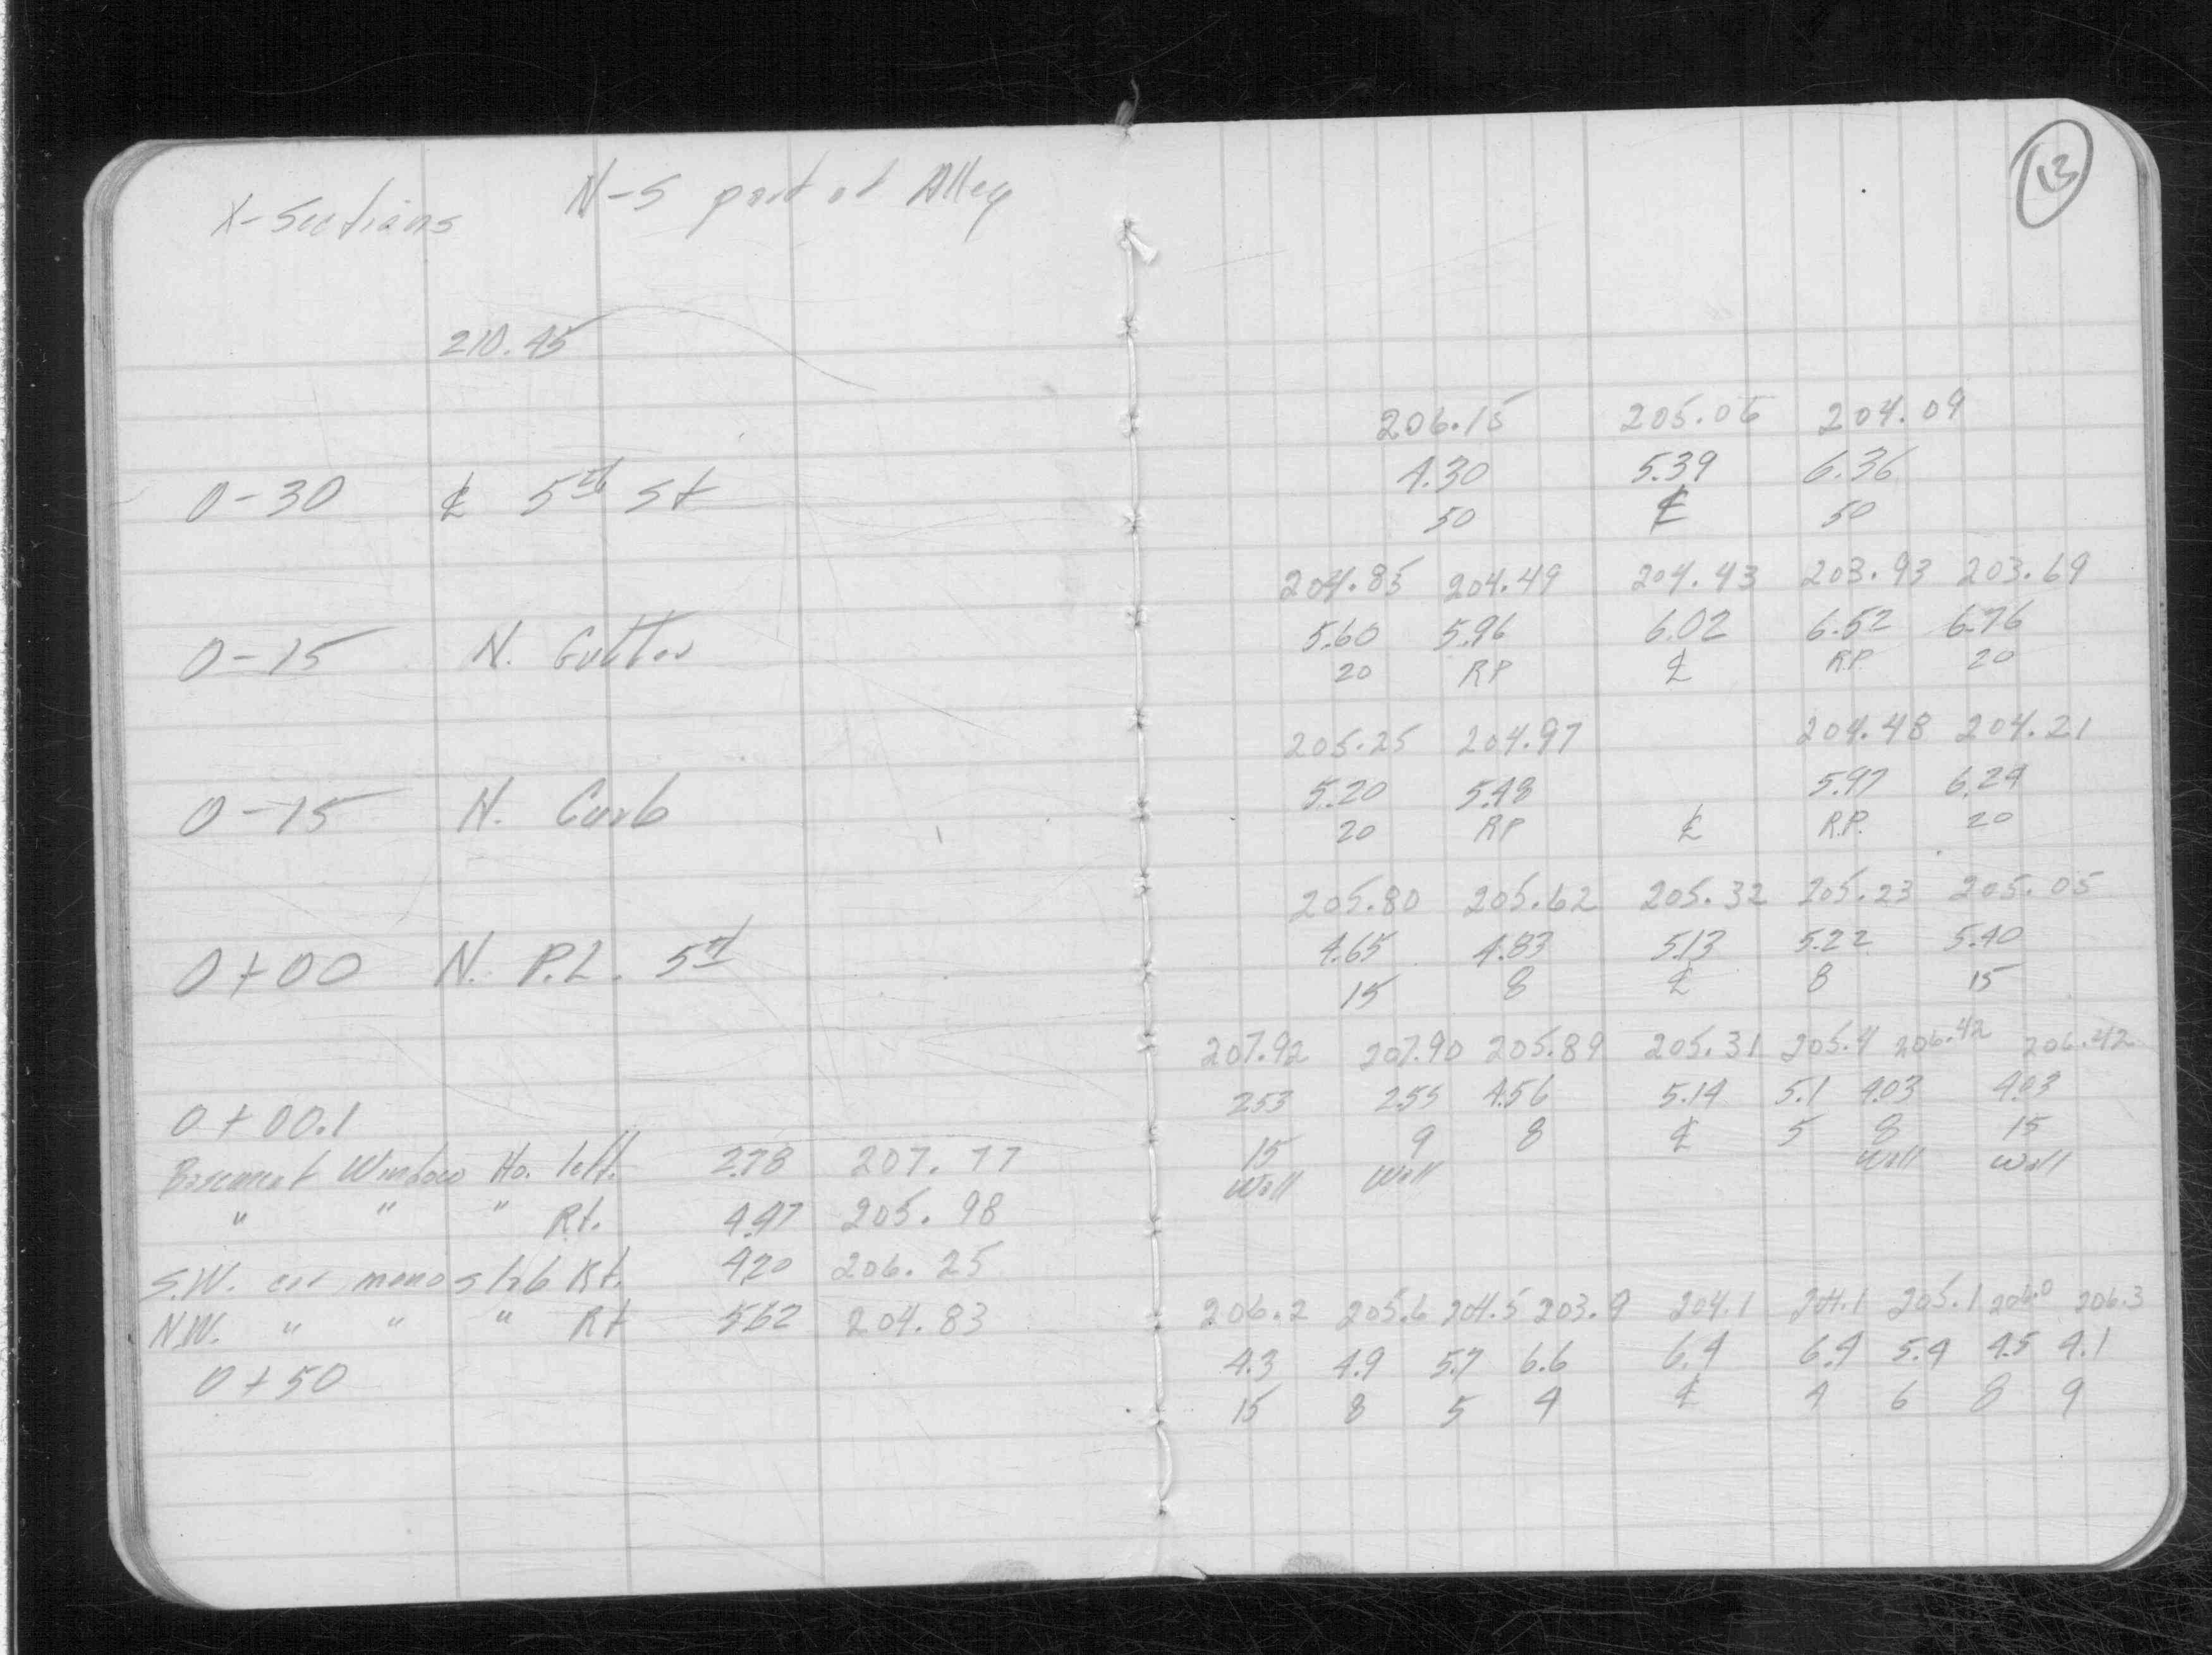 X-Sections N-S part of Alley
210.45
0-30 ℄ 5th St
0-15 N. Gutter
0-15 N. Curb
0+00 N. P.L. 5th
0+00.1
Basement Window Ho. left. 2.78 207.77
" " " Rt. 4.47 205.98
S.W. cor mono slab Rt. 4.20 206.25
N.W. " " " Rt 5.62 204.83
0+50
13
206.15 205.06 204.09
4.30 5.39 6.36
50 ℄ 50
204.85 204.49 204.43 203.93 203.69
5.60 5.96 6.02 6.52 6.76
20 RP ℄ R.P. 20
205.25 204.97 204.48 204.21
5.20 5.48 5.97 6.24
20 RP ℄ R.P. 20
205.80 205.62 205.32 205.23 205.05
4.65 4.83 5.13 5.22 5.40
15 8 ℄ 8 15
207.92 207.90 205.89 205.31 205.4 206.42 206.42
2.53 2.55 4.56 5.14 5.1 4.03 4.03
15 9 8 ℄ 5 8 15
Wall Wall Wall Wall
206.2 205.6 204.5 203.9 204.1 204.1 205.1 206.0 206.3
4.3 4.9 5.7 6.6 6.4 6.4 5.4 4.5 4.1
15 8 5 4 ℄ 4 6 8 9